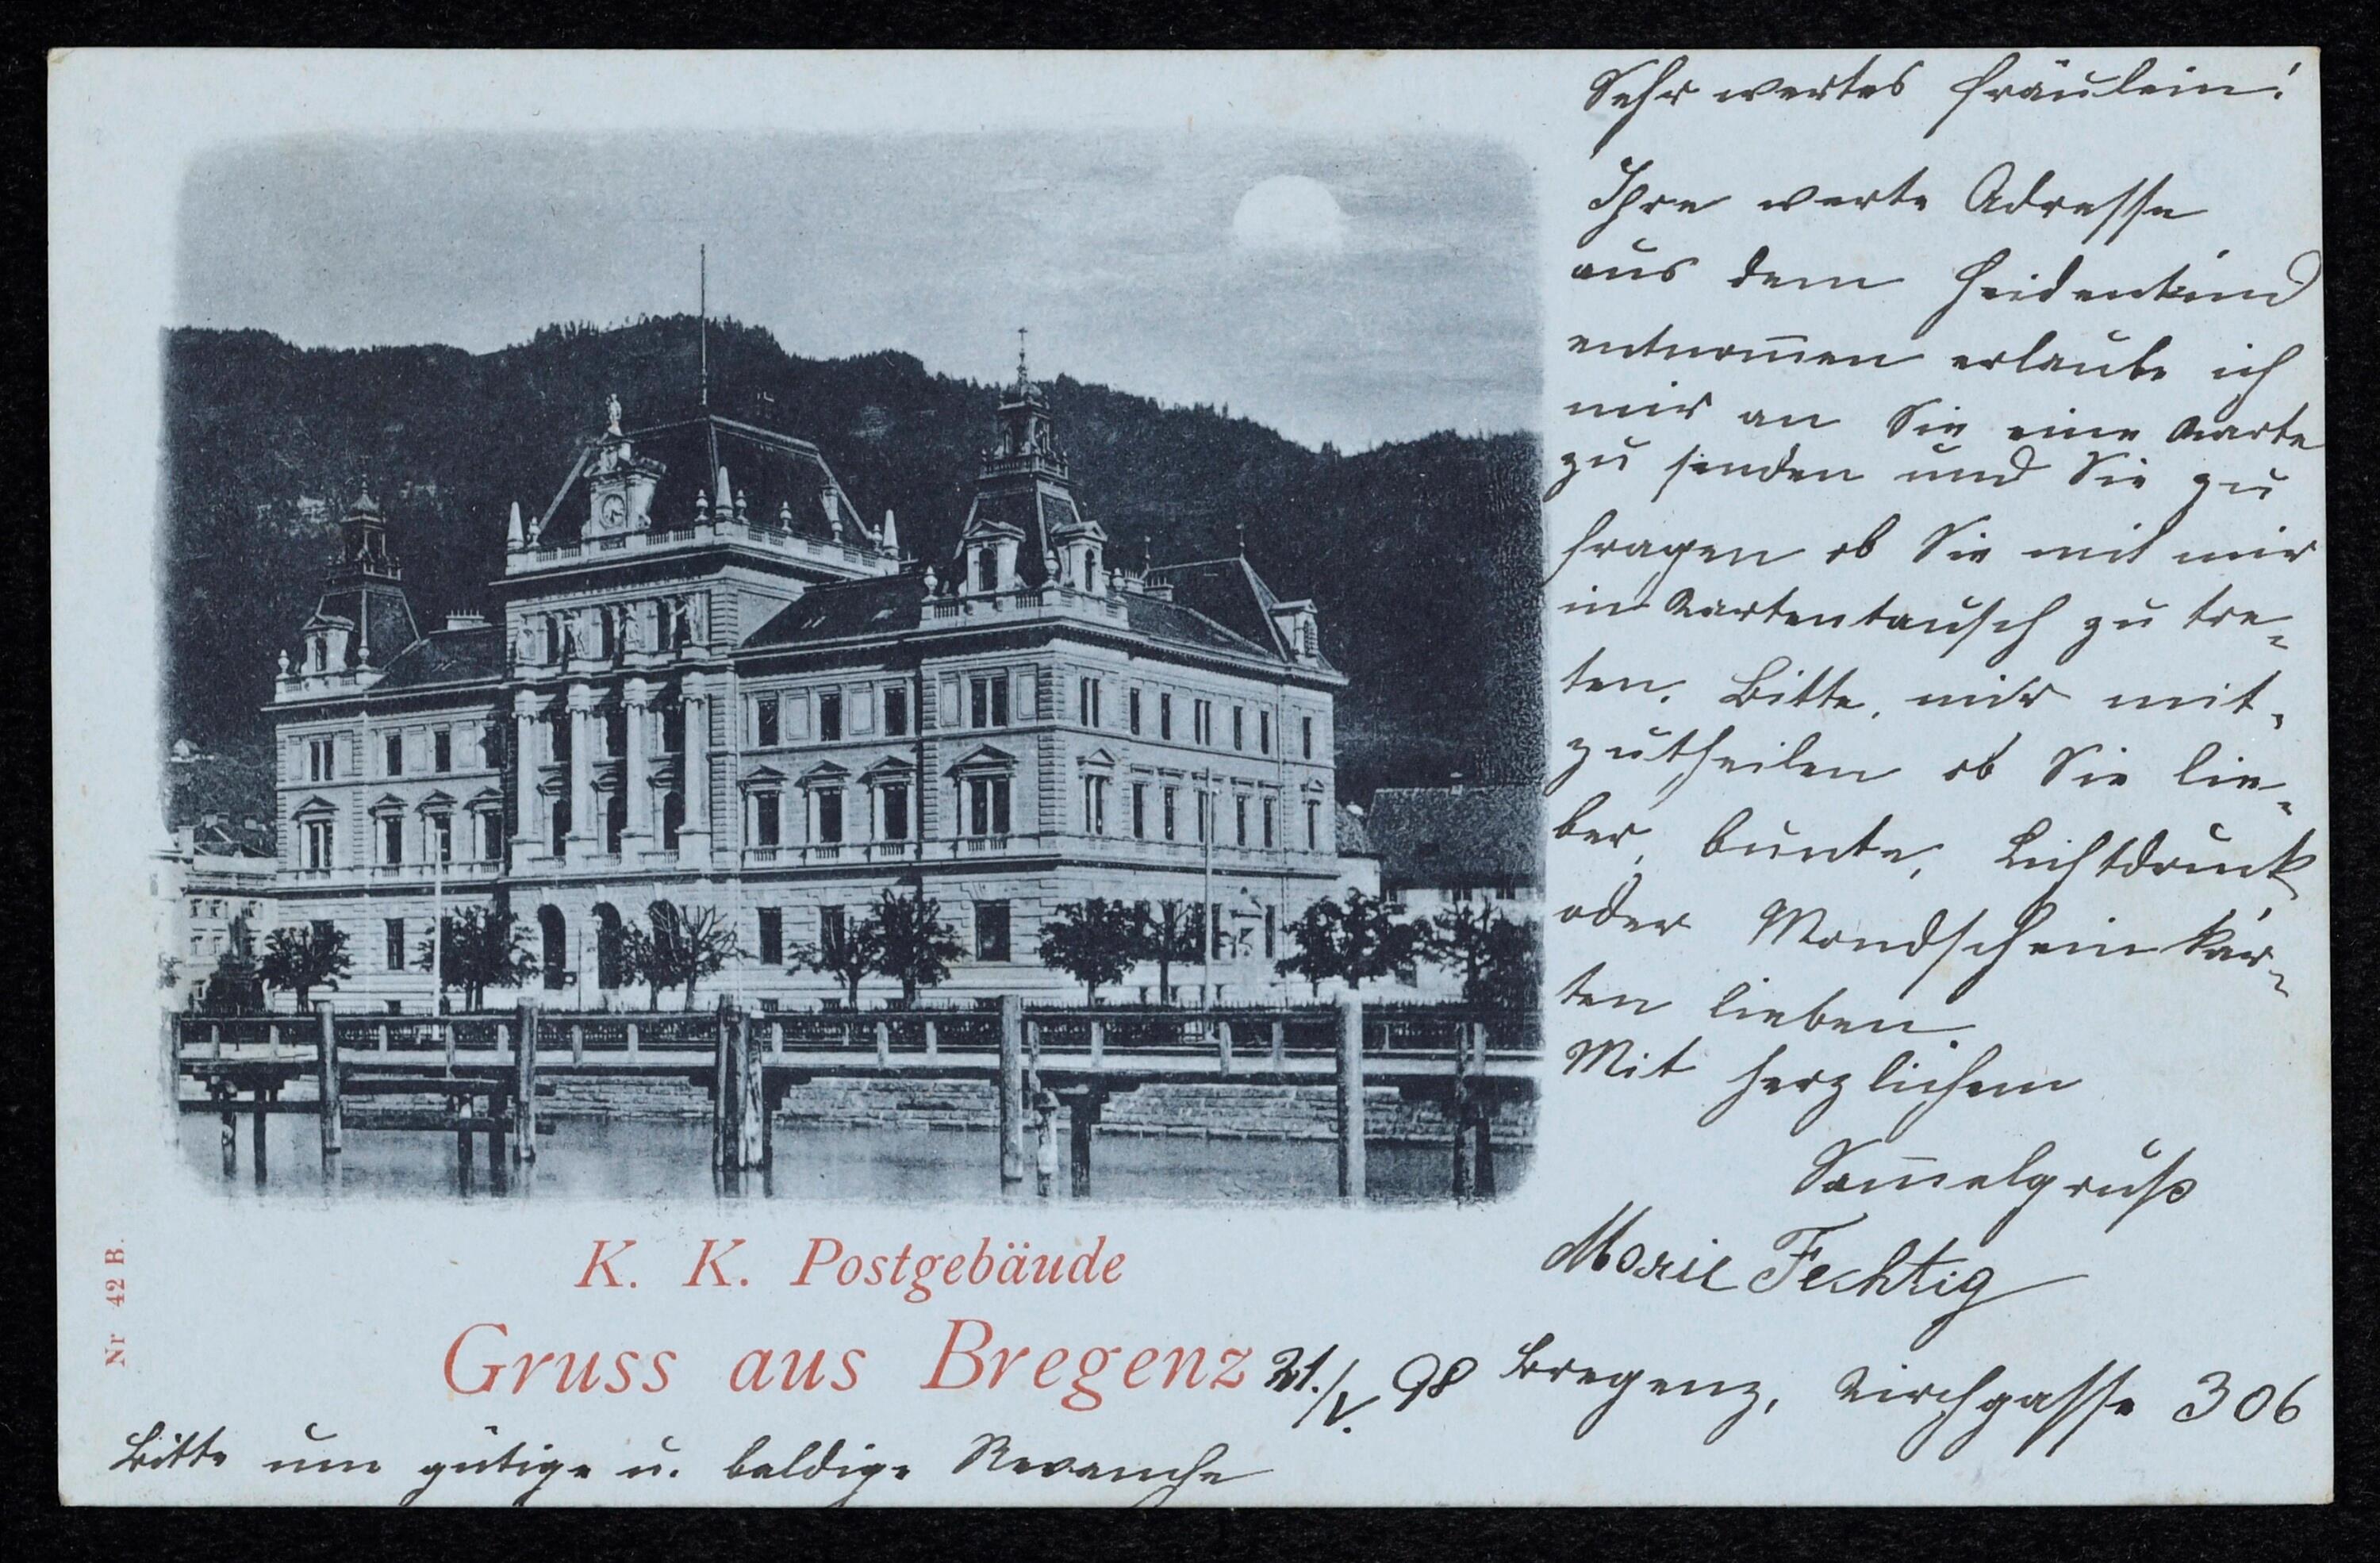 Sehr wertes Fräulein!
Ihre werte Adresse
aus dem Heidenkind
entnom̅en erlaube ich
mir an Sie eine Karte
zu senden und Sie zu
fragen ob Sie mit mir
in Kartentausch zu tre-
ten. Bitte, mir mit-
zutheilen ob Sie lie-
ber, bunte, Lichtdruck
oder Mondschein kar-
ten lieben.
Mit herzlichem
Sam̅elgruß
Marie Fechtig
K. K. Postgebäude
Gruss aus Bregenz
21./V. 98 Bregenz, Kirchgasse 306
Bitte um gütige u. baldige Revanche
Nr 42 B.